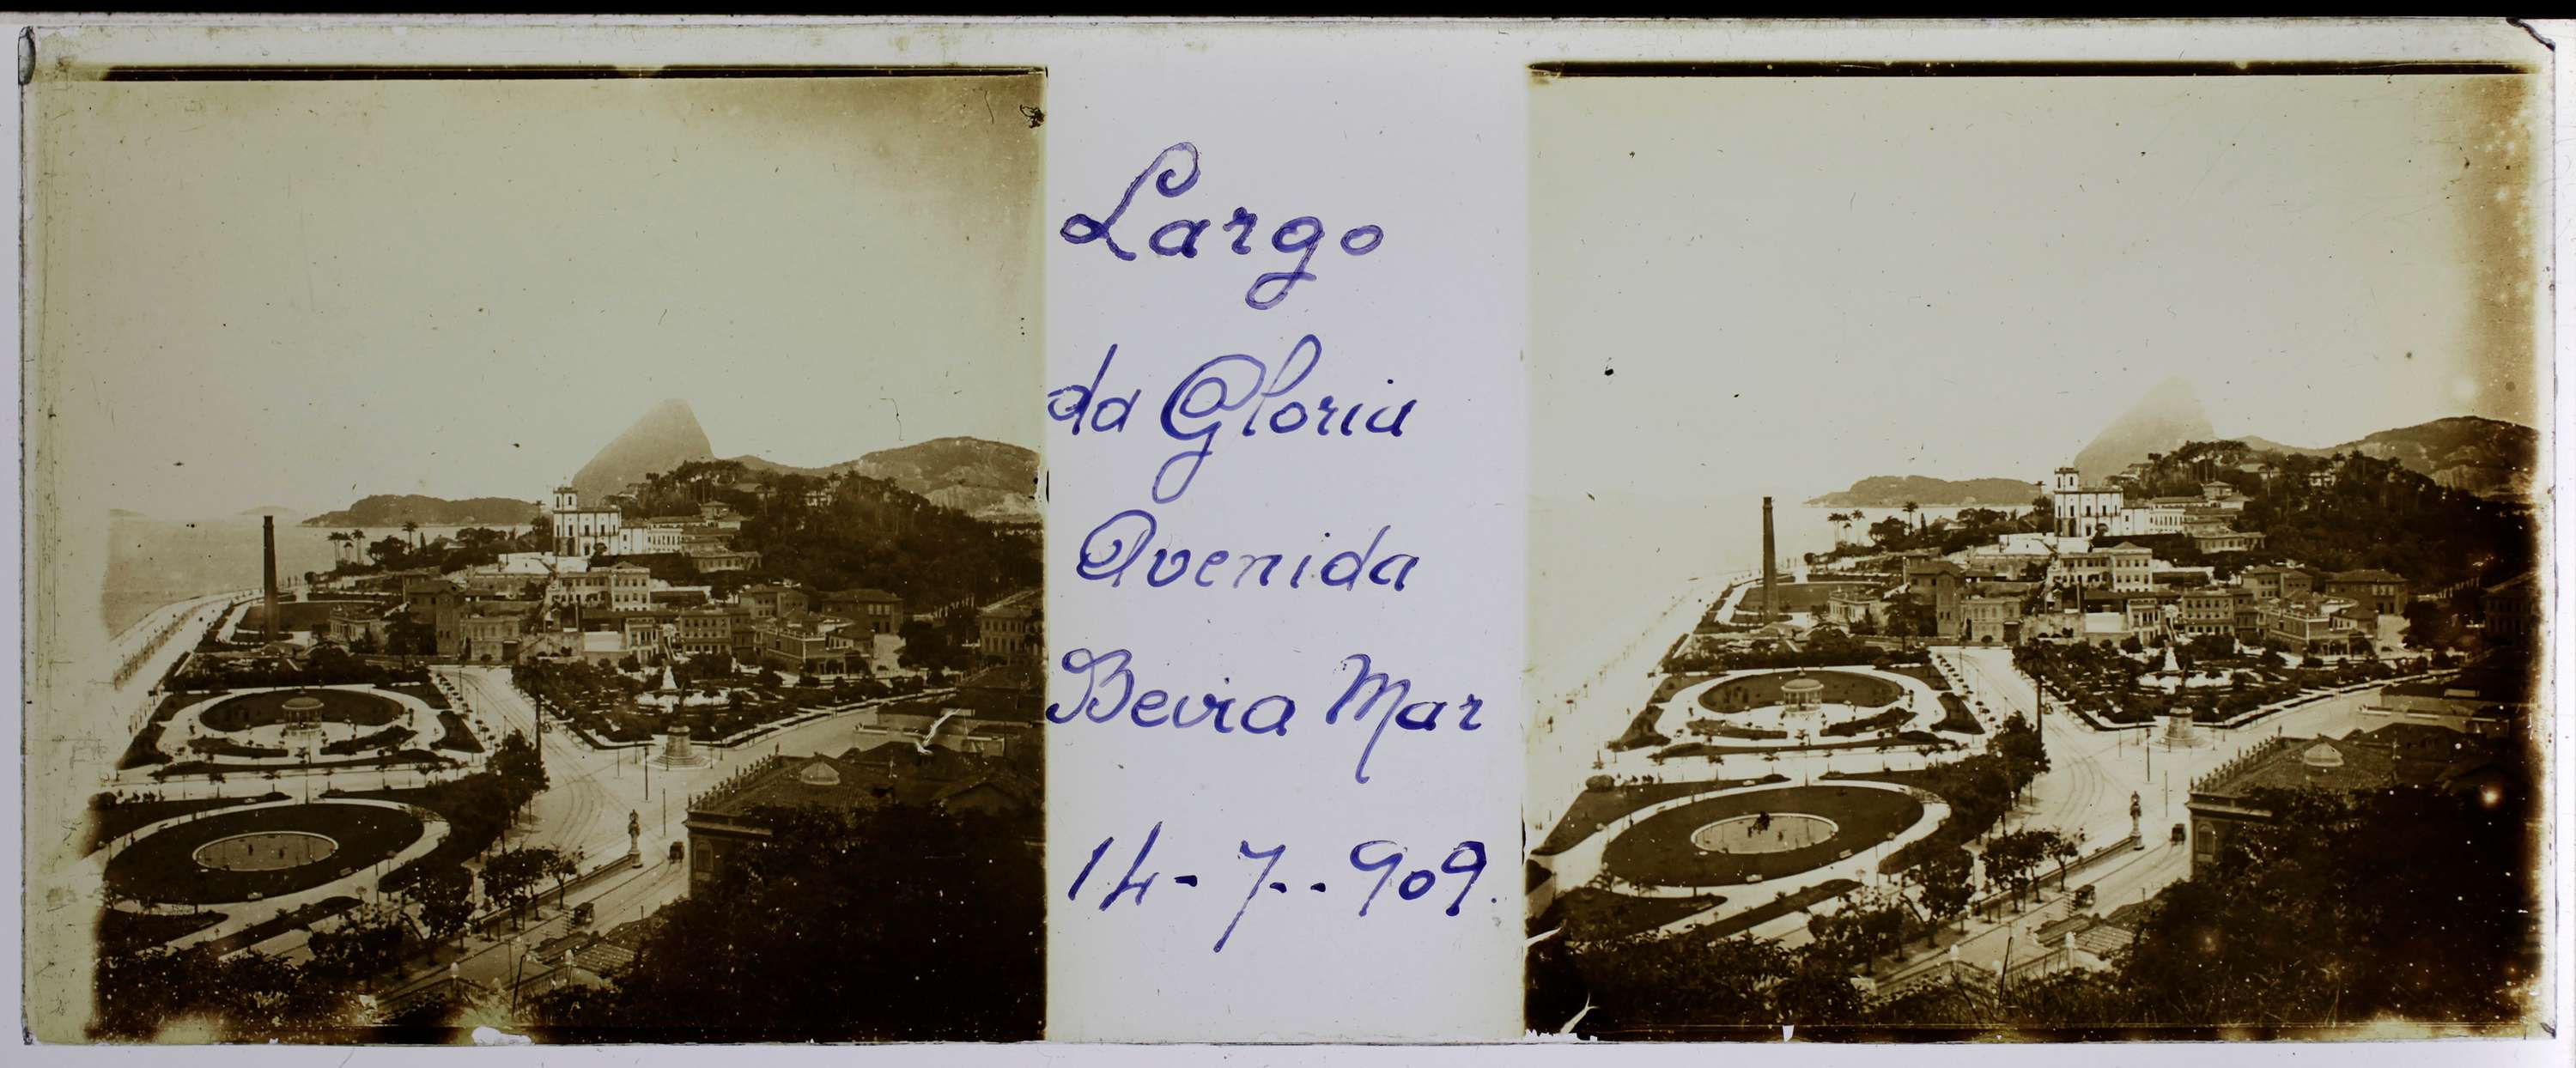 Largo
da Gloria
Avenida
Beira Mar
14-7--909.